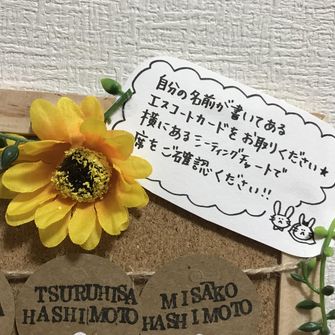 自分の名前が書いてある
エスコートカードをお取りください★
横にあるミーティングチャートで
席をご確認ください!!
TSURUHISA
HASHIMOTO
MISAKO
HASHIMOTO